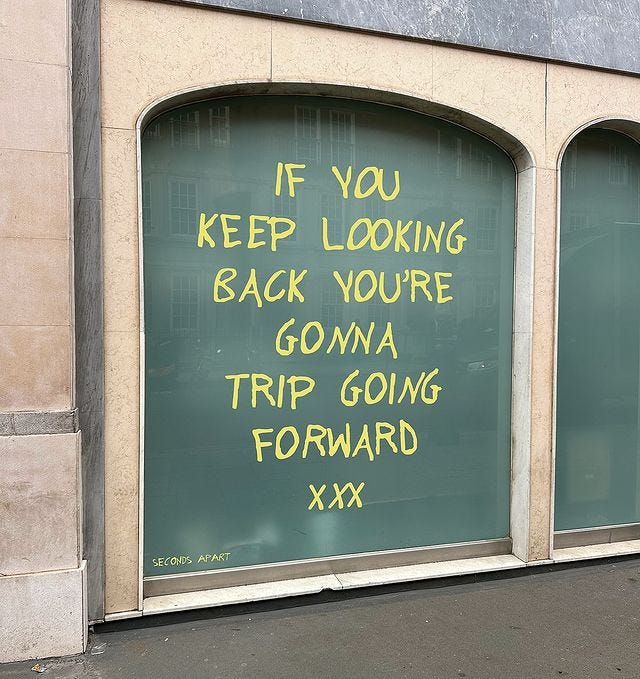 IF YOU
KEEP LOOKING
BACK YOU'RE
GONNA
TRIP GOING
FORWARD
XXX
SECONDS APART